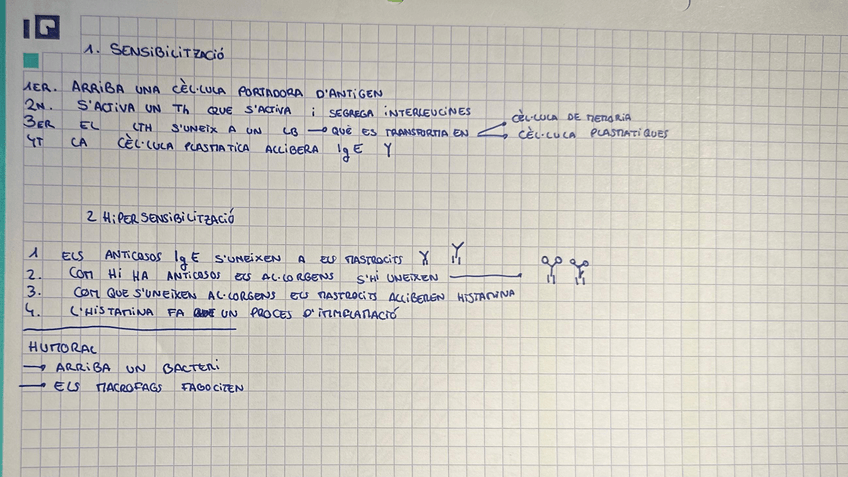 1. SENSIBILITZACIÓ
1ER. ARRIBA UNA CÈL·LULA PORTADORA D'ANTIGEN
2N. S'ACTIVA UN Th QUE S'ACTIVA i SEGREGA INTERLEUCINES
3ER EL LTH S'UNEIX A UN LB → QUÈ ES TRANSFORMA EN
CÈL·LULA DE MEMÒRIA
CÈL·LULA PLASMATIQUES
4T LA CÈL·LULA PLASMATICA ALLIBERA IgE Y
2 HIPERSENSIBILITZACIÓ
1 ELS ANTICOSOS IgE S'UNEIXEN A ELS MASTROCITS
2. COM HI HA ANTICOSOS ELS AL·LORGENS S'HI UNEIXEN
3. COM QUE S'UNEIXEN AL·LORGENS ELS MASTROCITS ALLIBEREN HISTAMINA
4. L'HISTAMINA FA UN PROCES D'IMFLAMACIÓ
HUMORAL
→ ARRIBA UN BACTERI
→ ELS MACROFAGS FAGOCITEN